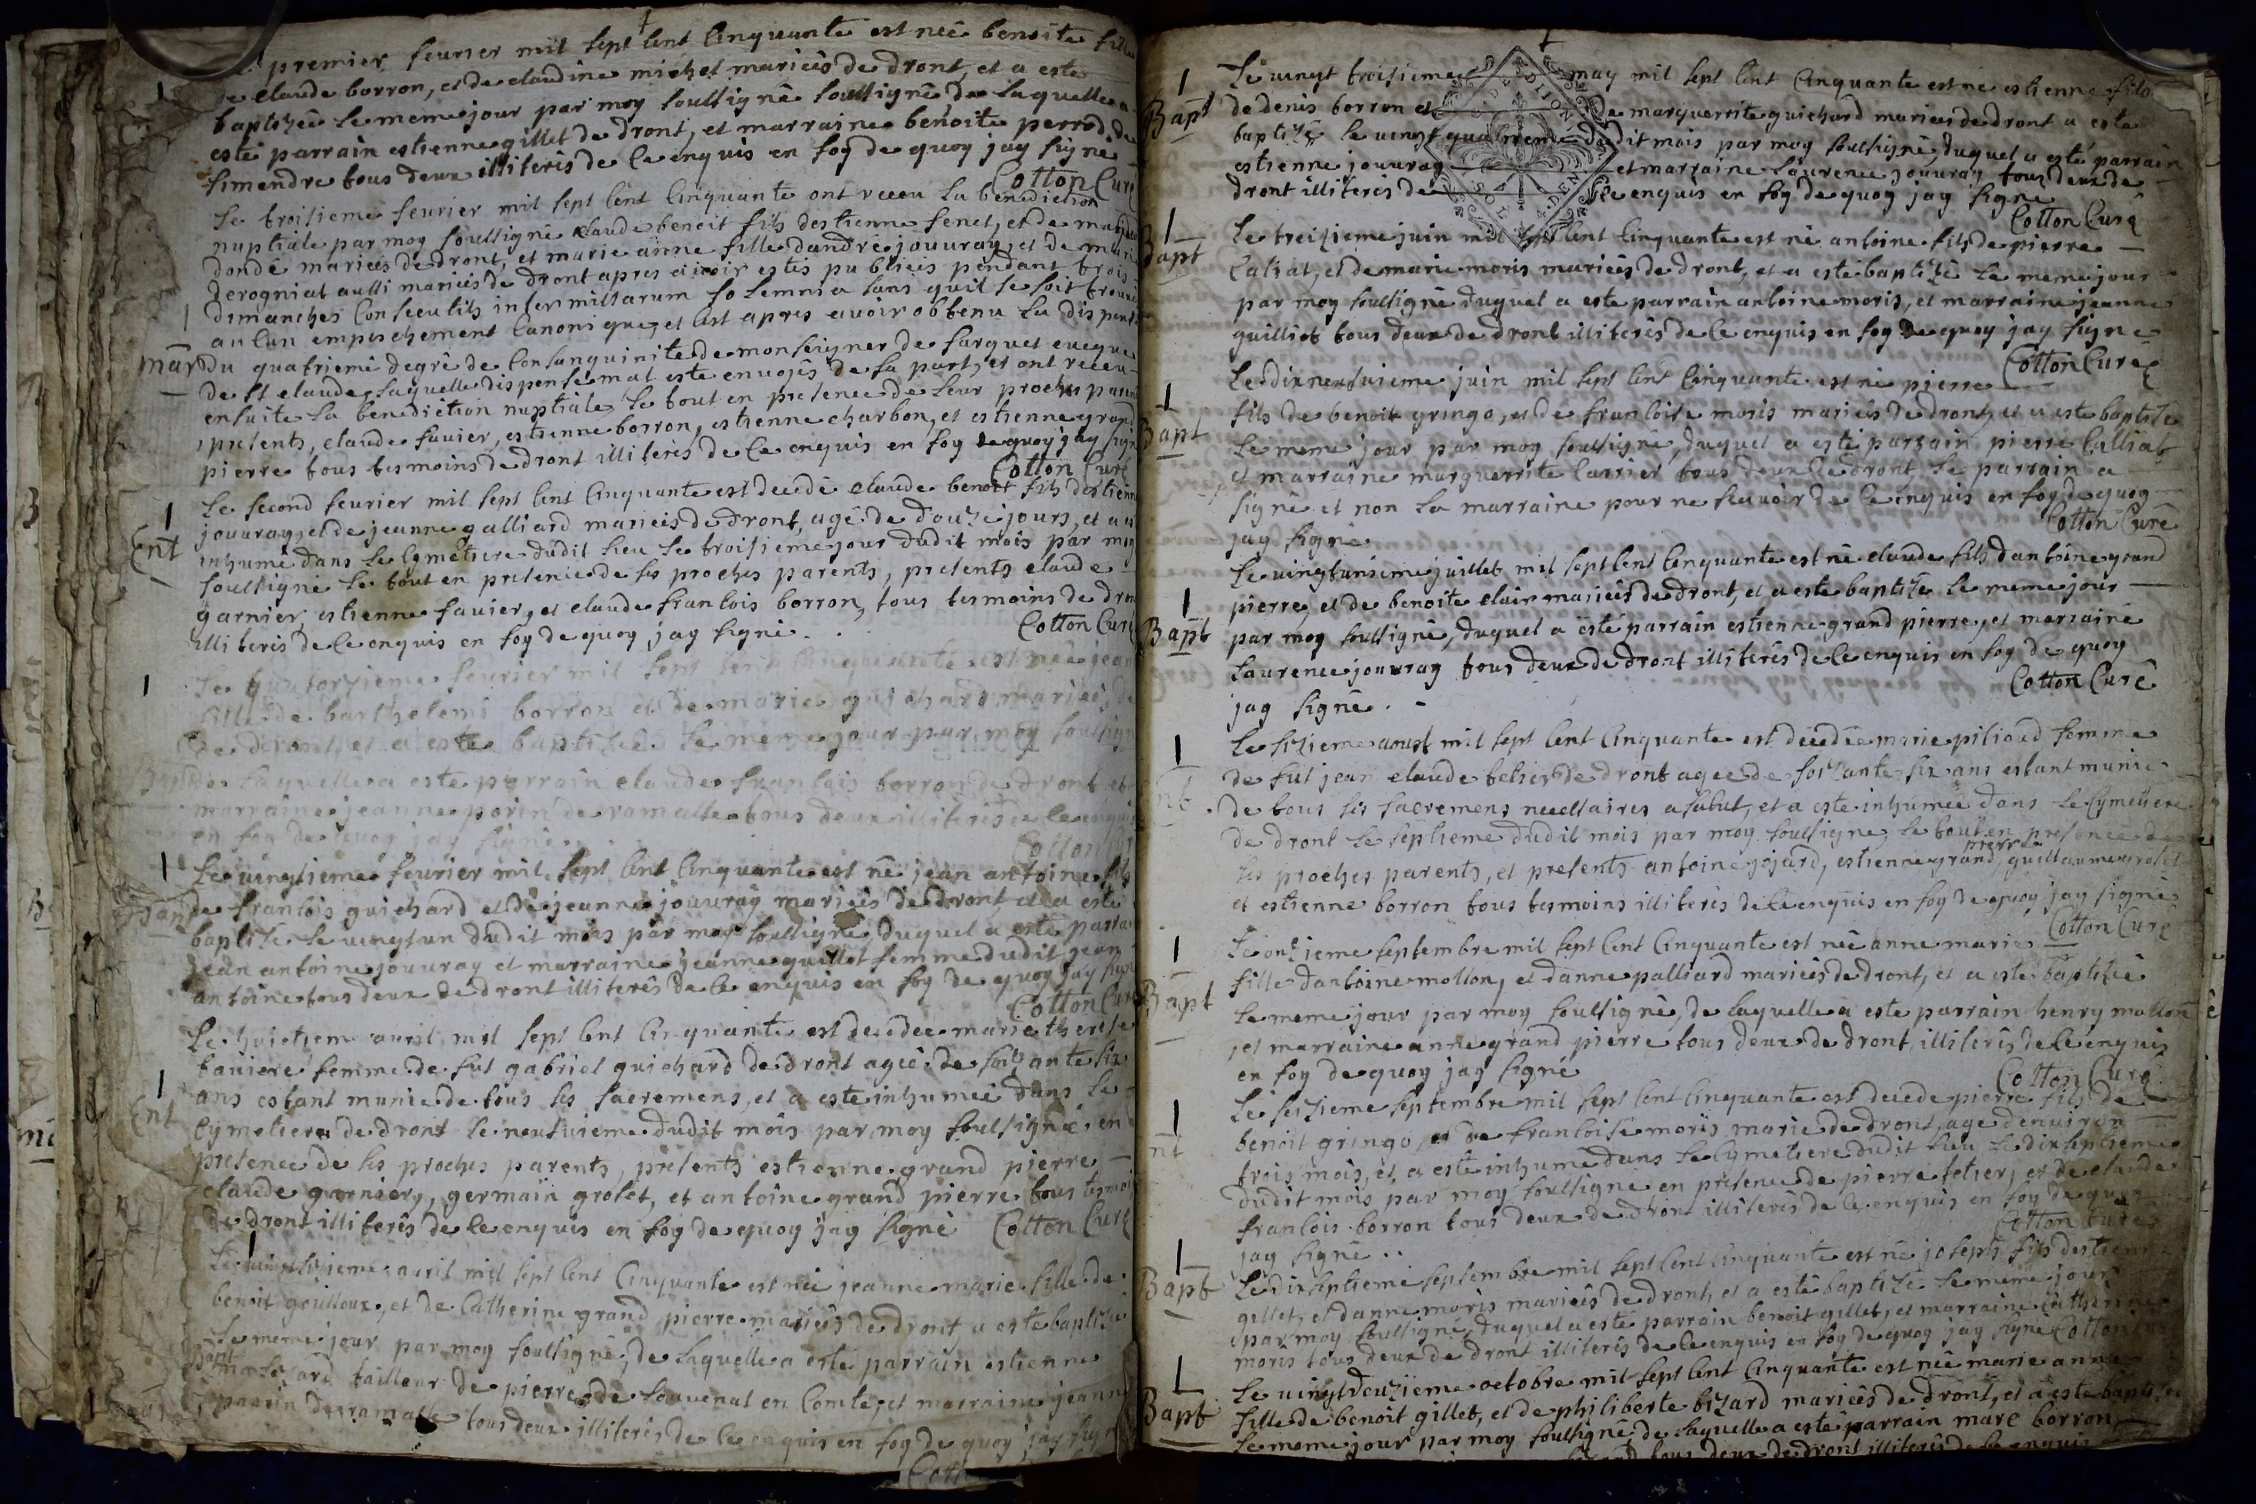 premier feurier mil sept cent Cinquante est neê benoite fille
de claude borron, et de claudine michel mariéés de dront, et a este
baptizéé le meme jour par moy soussigné soussigné de laquelle a
esté parrain estienne gillet de dront, et marraine benoite perrod de
simandre tous deux illiterés de ce enquis en foy de quoy jay signé
Cotton Curé
Le troisieme feurier mil sept cent Cinquante ont receu la benediction
nuptiale par moy soussigné claude benoit fils destienne fenet, et de
dondé mariéés de dront, et marie anne fille dandré jouuray, et de marie
derogniat aussi mariés de dront apres auoir estés publiéés pendant trois
dimanches Consecutifs inter missarum solemnia sans quil se soit trouué
aucun empeschement Canonique, et cest apres auoir obtenu la dispense
Mar
du quatrieme degré de Consanguinité de monseigner de farguet eueque
de st claude, laquelle dispense mat esté enuoyéé de sa part, et ont receu
ensuite la benediction nuptiale le tout en presence de leur proches parents
presents, claude fauier, estienne borron, estienne charbon, et estienne grand
pierre tous tesmoins de dront illiterés de ce enquis en foy de quoy jay signé
Cotton Curé
Le second feurier mil sept cent Cinquante est decedé claude benoit fils destienne
jouuray, et de jeanne galliard mariéés de dront, agé de douze jours, et a
Ent
inhumé dans le Cymetiere dudit lieu le troisieme jour dudit mois par moy
soussigné le tout en presence de ses proches parents, presents claude
garnier, estienne fauier, et claude francois borron, tous tesmoins de dront
illiterés de ce enquis en foy de quoy jay signé.
Cotton Curé
Le quatorzieme feurier mil sept cent Cinquante est neé
fille de barthelemi borron et de marie guichard mariéés
de dront, et a este baptizéé le meme jour par moy soussigné
de laquelle a este parrain claude francois borron de dront et
marraine jeanne porin de ramasse tous deux illiterés de ce enquis
en foy de quoy jay signé
Cotton
Le uingtieme feurier mil sept cent Cinquante est né jean antoine fils
Bap
de francois guichard et de jeanne jouuray mariéés de dront, et a esté
baptizé le uingt un dudit mois par moy soussigné, duquel a esté parrain
jean antoine jouuray et marraine jeanne guillot femme dudit jean
antoine tous deux de dront illiterés de ce enquis en foy de quoy jay signé
Cotton Curé
Le huictieme auril mil sept cent Cinquante est decedée marie therese
tauiere femme de fut gabriel guichard de dront agéé de soizante six
ans estant munie de tous ses sacremens, et a este inhumeé dans le
Ent
Cymetiere de dront le neufuieme dudit mois par moy soussigné, en
presence de ses proches parents, presents estienne grand pierre
claude garnier, germain grolet, et antoine grand pierre tous tesmoins
de dront illiterés de ce enquis en foy de quoy jay signé Cotton Curé
Le uingt sixieme auril mil sept cent Cinquante est née jeanne marie fille de
benoit goulloux, et de Catherine grand pierre mariéés de dront a este baptizéé
le meme jour par moy soussigné, de laquelle a esté parrain estienne
Bapt
tailleur de pierre de louuenat en Comté, et marraine jeanne
porin de ramasse tous deux illiterés de ce enquis en foy de quoy jay signé
Cott
Le uingt troisieme may mil sept cent Cinquante est né estienne fils
Bapt
de denis borron et de marguerrite guichard mariéés de dront a este
baptizé le uingt quatrieme dudit mois par moy soussigné, duquel a esté parrain
estienne jouuray et marraine laurence jouuray tous deux de
dront illiterés de ce enquis en foy de quoy jay signé
Cotton Curé
Le treizieme juin mil sept cent Cinquante est né antoine fils de pierre
Bapt
Caliat, et de marie moris mariéés de dront, et a esté baptizé le meme jour
par moy soussigné duquel a este parrain antoine moris, et marraine jeanne
guilliot tous deux de dront illiterés de ce enquis en foy de quoy jay signé
Cotton Curé
Le dixneufuieme juin mil sept cent Cinquante est né pierre
fils de benoit gringo, et de francoise moris mariéés de dront, et a este baptizé
Bapt
le meme jour par moy soussigné, duquel a esté parrain pierre Calliat
et marraine marguerrite Carrier tous deux de dront le parrain a
signé et non la marraine pour ne scauoir de ce enquis en foy de quoy
jay signé.
Cotton Curé
Le uingtunieme juillet mil sept cent Cinquante est né claude fils dantoine grand
pierre, et de benoite clair mariéés de dront, et a este baptizé le meme jour
Bapt
par moy soussigné, duquel a esté parrain estienne grand pierre, et marraine
laurence jouuray tous deux de dront illiterés de ce enquis en foy de quoy
jay signé.
Cotton Curé
Le sizieme aoust mil sept cent Cinquante est decedée marie piliard femme
de fut jean claude tetier de dront agée de soizante six ans estant munie
nt
de tous ses sacremens necessaires a salut, et a este inhumée dans le Cymetiere
de dront le septieme dudit mois par moy soussigné, le tout en presence de
ses proches parents, et presents antoine gojard, estienne grand pierre, guillaume grolet
et estienne borron tous tesmoins illiterés de ce enquis en foy de quoy jay signé
Cotton Curé
Le onzieme septembre mil sept cent Cinquante est née anne marie
fille dantoine mollon, et danne palliard mariéés de dront, et a este baptizéé
Bapt
le meme jour par moy soussigné, de laquelle a este parrain henry mollon
et marraine anne grand pierre tous deux de dront illiterés de ce enquis
en foy de quoy jay signé
Cotton Curé
Le seizieme septembre mil sept cent Cinquante est decedé pierre fils de
benoit gringo et de francoise moris marié de dront, agé denuiron
nt
trois mois, et a este inhumé dans le Cymetiere dudit lieu le dixseptieme
dudit mois par moy soussigné en presence de pierre tetier, et de claude
francois borron tous deux de dront illiterés de ce enquis en foy de quoy
jay signé..
Cotton Curé
Bapt
Le dixseptieme septembre mil sept cent Cinquante est né joseph fils destienne
gillet, et danne moris mariéés de dront, et a esté baptizé le meme jour
par moy soussigné, duquel a esté parrain benoit gillet, et marraine Catherine
moris tous deux de dront illiterés de ce enquis en foy de quoy jay signé Cotton
Le uingtdeuzieme octobre mil sept cent Cinquante est née marie anne
Bapt
fille de benoit gillet, et de philiberte bizard mariéés de dront, et a este baptizéé
le meme jour par moy soussigné, de laquelle a este parrain marc borron
tous deux de dront illiterés de ce enquis